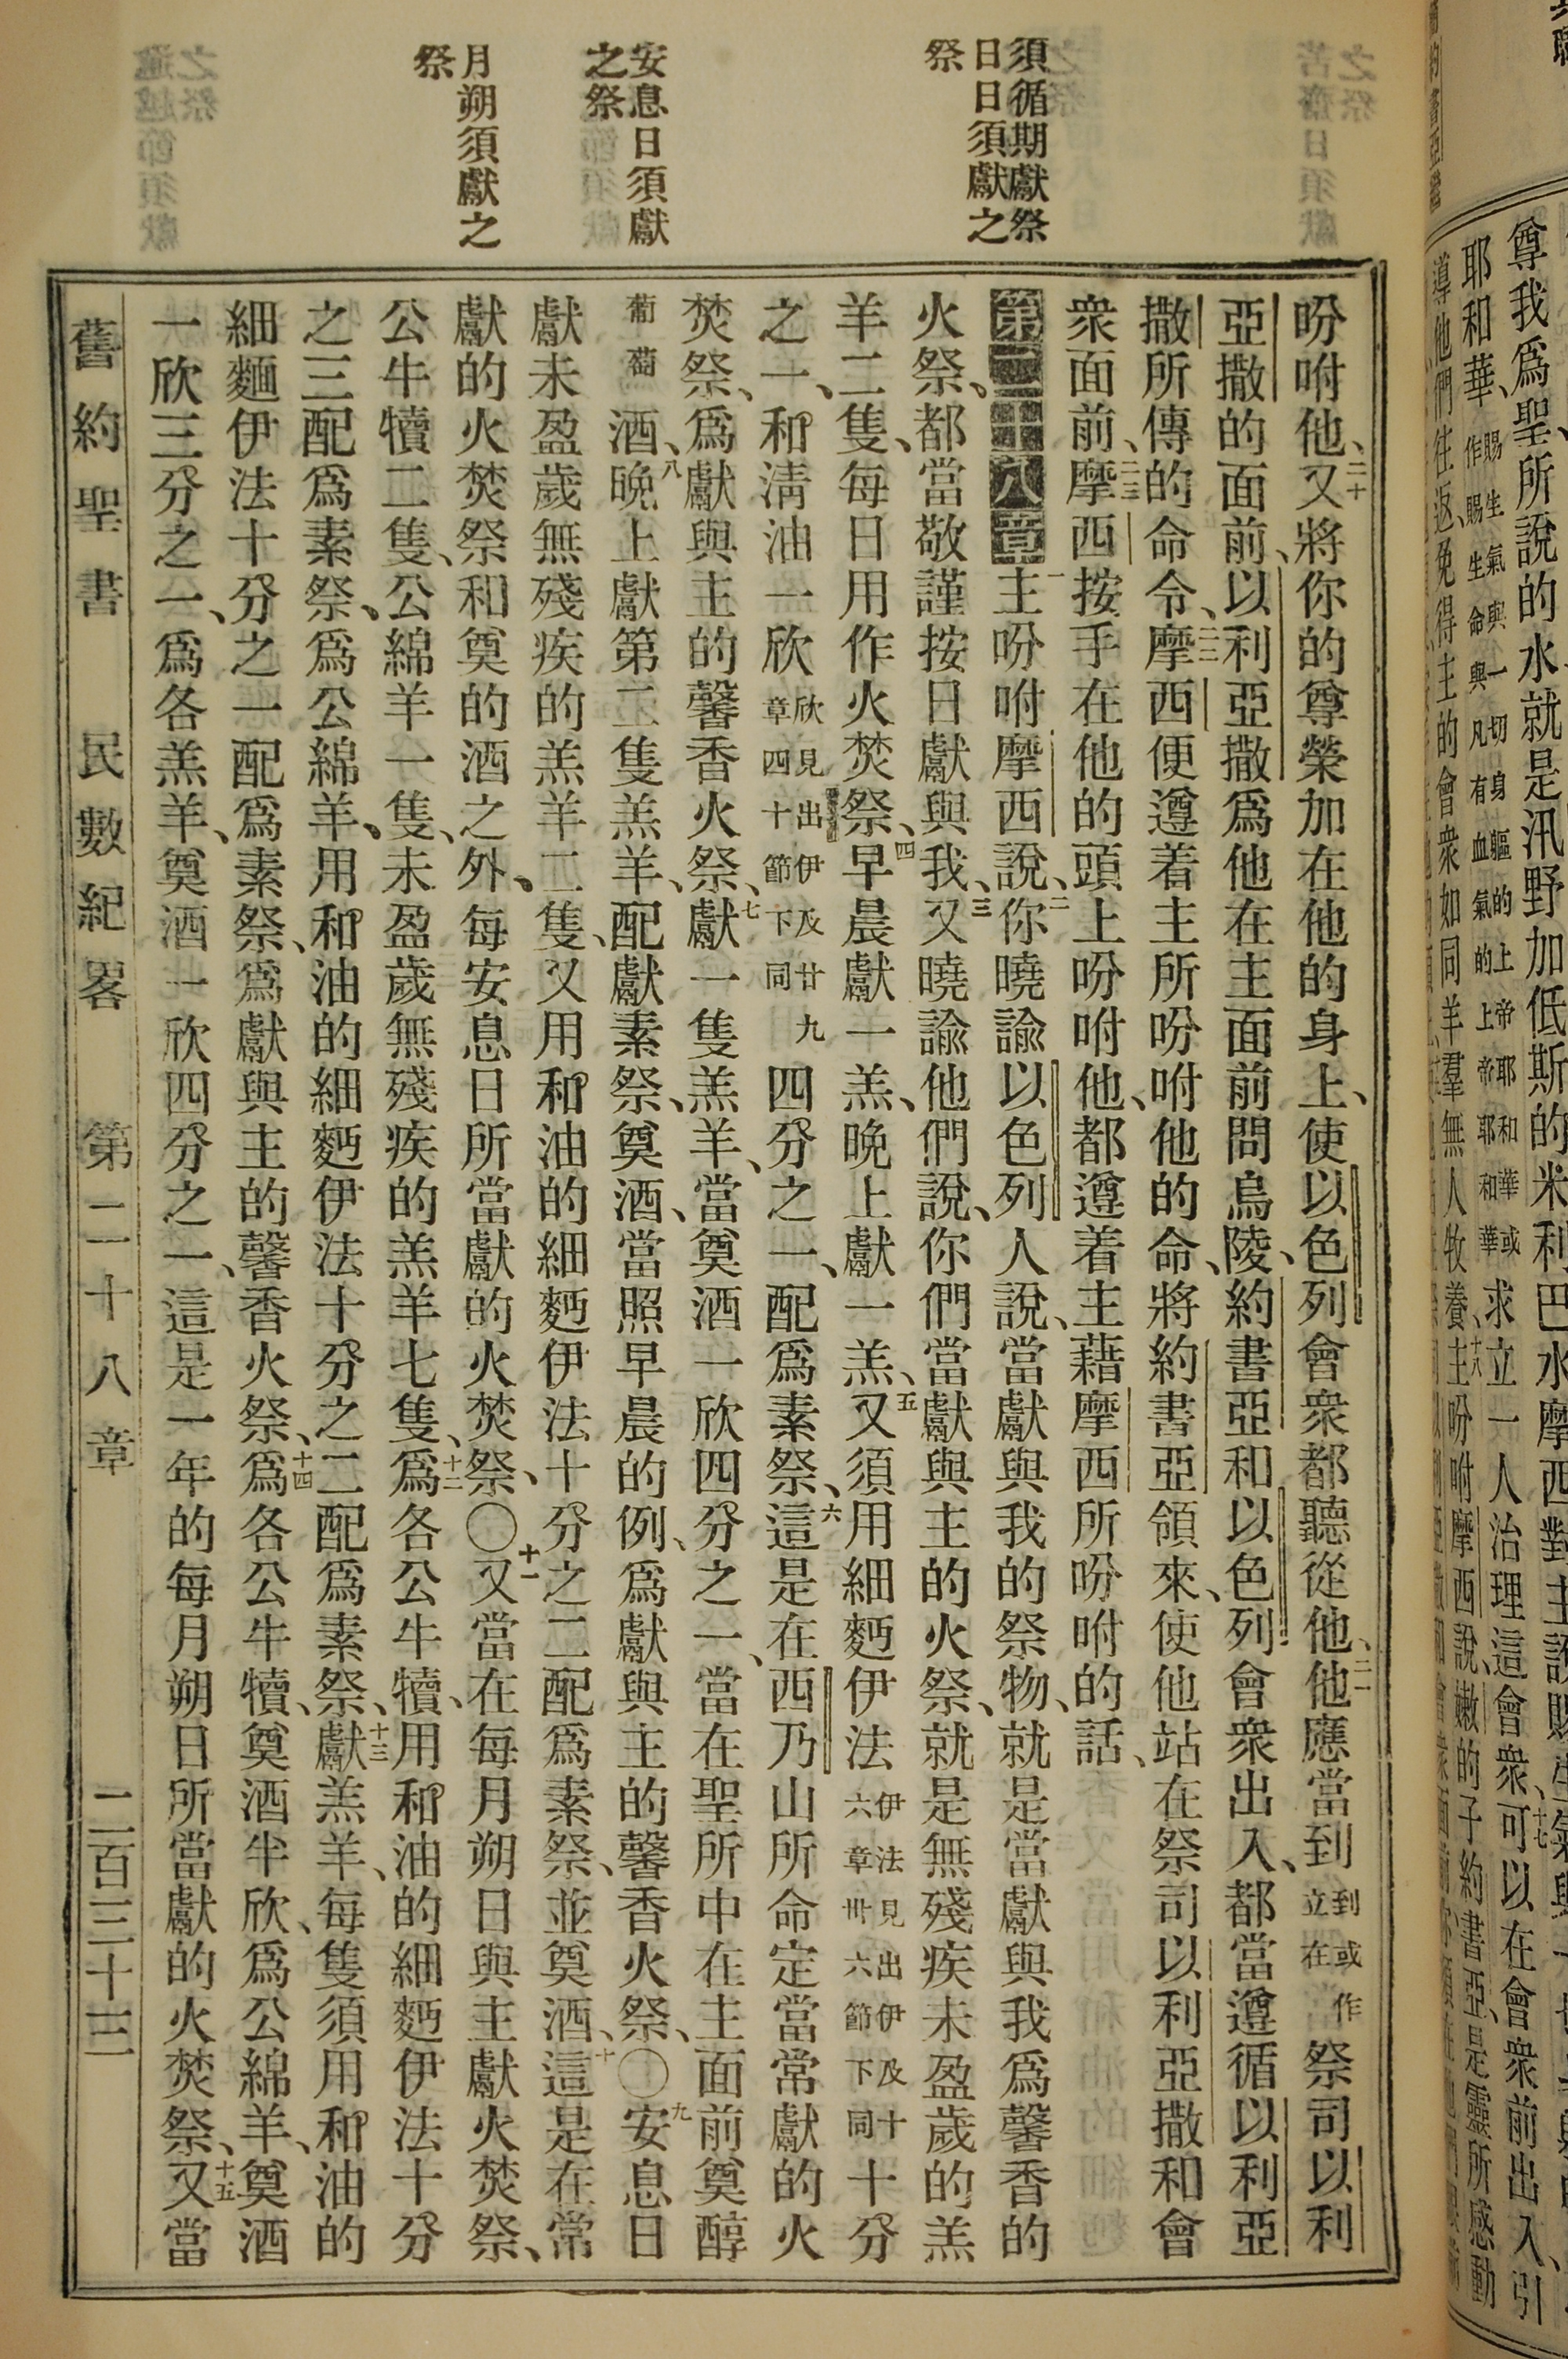 須循期獻祭
日日須獻之
祭
安息日須獻
之祭
月朔須獻之
祭
吩咐他、二十又將你的尊榮加在他的身上、使以色列會衆都聽從他、二一他應當到到或作立在祭司以利
亞撒的面前、以利亞撒爲他在主面前問烏陵、約書亞和以色列會衆出入、都當遵循以利亞
撒所傳的命令、二二摩西便遵着主所吩咐他的命、將約書亞領來、使他站在祭司以利亞撒和會
衆面前、二三摩西按手在他的頭上吩咐他、都遵着主藉摩西所吩咐的話、
第二十八章一主吩咐摩西說、二你曉諭以色列人說、當獻與我的祭物、就是當獻與我爲馨香的
火祭、都當敬謹按日獻與我、三又曉諭他們說、你們當獻與主的火祭、就是無殘疾未盈歲的羔
羊二隻、每日用作火焚祭、四早晨獻一羔、晚上獻一羔、五又須用細麪伊法伊法見出伊及十六章卅六節下同十分
之一、和淸油一欣欣見出伊及廿九章四十節下同四分之一、配爲素祭、六這是在西乃山所命定當常獻的火
焚祭、爲獻與主的馨香火祭、七獻一隻羔羊、當奠酒一欣四分之一、當在聖所中在主面前奠醇
葡萄酒、八晚上獻第二隻羔羊、配獻素祭、奠酒、當照早晨的例、爲獻與主的馨香火祭、〇九安息日
獻未盈歲無殘疾的羔羊二隻、又用和油的細麪伊法十分之二配爲素祭、並奠酒、十這是在常
獻的火焚祭和奠的酒之外、每安息日所當獻的火焚祭、〇十一又當在每月朔日與主獻火焚祭、
公牛犢二隻、公綿羊一隻、未盈歲無殘疾的羔羊七隻、十二爲各公牛犢、用和油的細麪伊法十分
之三配爲素祭、爲公綿羊、用和油的細麪伊法十分之二配爲素祭、十三獻羔羊、每隻須用和油的
細麵伊法十分之一配爲素祭、爲獻與主的馨香火祭、十四爲各公牛犢、奠酒半欣、爲公綿羊、奠酒
一欣三分之一、爲各羔羊、奠酒一欣四分之一、這是一年的每月朔日所當獻的火焚祭、十五又當
舊約聖書 民數紀畧 第二十八章 二百三十三